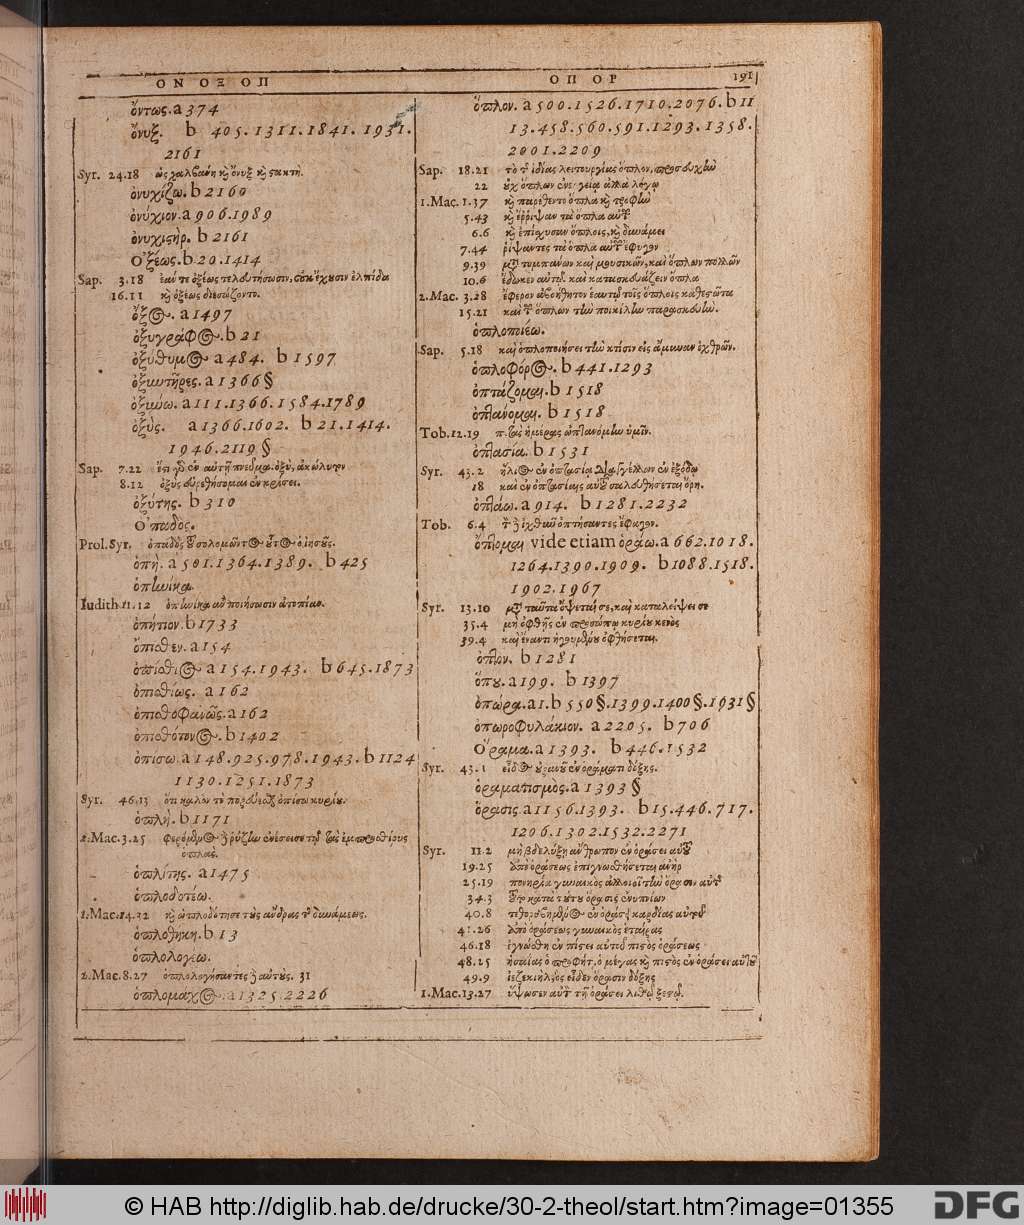 ΟΝ ΟΞ ΟΠ
ΟΠ ΟΡ
191
ὄντως. a 374
ὄνυξ. b 405. 1311. 1841. 1931.
2161
Syr. 24.18 ὡς χαλβάνη κὴ ὄνυξ κὴ ςακτὴ.
ὀνυχίζω. b 2160
ὀνύχιον. a 906. 1989
ὀνυχιςὴρ. b 2161
Ὀξέως. b 20. 1414
Sap. 3.18 ἐάν τε ὀξέως τελευτήσωσιν, οὐκ ἕξουσιν ἐλπίδα
16.11 κὴ ὀξέως διεσώζοντο.
ὄξος. a 1497
ὀξυγράφος. b 21
ὀξύθυμος a 484. b 1597
ὀξυντῆρες. a 1366 §
ὀξύνω. a 111. 1366. 1584. 1789
ὀξὺς. a 1366. 1602. b 21. 1414.
1946. 2119 §
Sap. 7.22 ἔςι γὸ ἐν αὐτῇ πνεῦμα ὀξὺ, ἀκώλυτον
8.12 ὀξὺς εὑρεθήσομαι ἐν κρίσει.
ὀξύτης. b 310
Ὀπαδὸς.
Prol. Syr.
ὀπή. a 501. 1364. 1389. b 425
ὁπηνίκα.
Iudith. 11.12
ὀπήτιον. b 1733
ὄπισθεν. a 154
ὀπίσθιος a 154. 1943. b 645. 1873
ὀπισθίως. a 162
ὀπισθοφανῶς. a 162
ὀπισθότονος. b 1402
ὀπίσω. a 148. 925. 978. 1943. b 1124
1130. 1251. 1873
Syr. 46.13 ὅτι καλὸν τὸ πορεύεσθαι ὀπίσω κυρίου.
ὁπλὴ. b 1171
2. Mac. 3.25
ὁπλάς.
ὁπλίτης. a 1475
ὁπλοδοτέω.
1. Mac. 14.32 κὴ ὡπλοδότησε τοὺς ἄνδρας τῆς δυνάμεως.
ὁπλοθήκη. b 13
ὁπλολογέω.
2. Mac. 8.27 ὁπλολογήσαντες ἢ αὐτούς. 31
ὁπλομάχος. a 1325. 2226
ὅπλον. a 500. 1526. 1710. 2076. b 11
13. 458. 560. 591. 1293. 1358.
2001. 2209
Sap. 18.21 τὸ τῆς ἰδίας λειτουργίας ὅπλον, προσευχὴν
22 οὐχ ὅπλων ἐνεργείᾳ ἀλλὰ λόγῳ
1. Mac. 1.37 κὴ παρέθεντο ὅπλα κὴ τροφὴν
5.43 κὴ ἔῤῥιψαν τὰ ὅπλα αὐτῶν
6.6 κὴ ἐπίχυσαν ὅπλοις, κὴ δυνάμει
7.44 ῥίψαντες τὰ ὅπλα αὐτῶν ἔφυγον
9.39 μετὰ τυμπάνων καὶ μουσικῶν, καὶ ὅπλων πολλῶν
10.6 ἔδωκεν αὐτῷ καὶ κατασκευάζειν ὅπλα
2. Mac. 3.28 ἔφερον ἀβοήθητον ἑαυτῷ τοῖς ὅπλοις καθεςῶτα
15.21 καὶ τῶν ὅπλων τὴν ποικίλην παρασκευὴν.
ὁπλοποιέω.
Sap. 5.18 καὶ ὁπλοποιήσει τὴν κτίσιν εἰς ἄμυναν ἐχθρῶν.
ὁπλοφόρος. b 441. 1293
ὀπτάζομαι. b 1518
ὀπτάνομαι. b 1518
Tob. 12.19 πάσας ἡμέρας ὠπτανόμην ὑμῖν.
ὀπτασία. b 1531
Syr. 43.2 ἥλιος ἐν ὀπτασίᾳ διαγγέλλων ἐν ἐξόδῳ
18 καὶ ἐν ὀπτασίαις αὐτοῦ σαλευθήσεται ὄρη.
ὀπτάω. a 914. b 1281. 2232
Tob. 6.4 τὸν ἢ ἰχθὺν ὀπτήσαντες ἔφαγον.
ὄπτομαι vide etiam ὁράω. a 662. 1018.
1264. 1390. 1909. b 1088. 1518.
1902. 1967
Syr. 13.10 μετὰ ταῦτα ὄψεταί σε, καὶ καταλείψει σε
35.4 μὴ ὀφθῇς ἐν προσώπῳ κυρίου κενὸς
39.4 καὶ ἔναντι ἡγουμένου ὀφθήσεται.
ὀπτὸν. b 1281
ὅπου. a 199. b 1397
ὀπώρα. a 1. b 550 §. 1399. 1400 §. 1931 §
ὀπωροφυλάκιον. a 2205. b 706
Ὅραμα. a 1393. b 446. 1532
Syr. 43.1 εἶδος οὐρανοῦ ἐν ὁράματι δόξης.
ὁραματισμὸς. a 1393 §
ὅρασις a 1156. 1393. b 15. 446. 717.
1206. 1302. 1532. 2271
Syr. 11.2 μὴ βδελύξῃ ἄνθρωπον ἐν ὁράσει αὐτοῦ
19.25 ἀπὸ ὁράσεως ἐπιγνωσθήσεται ἀνὴρ
25.19 πονηρία γυναικὸς ἀλλοιοῖ τὴν ὅρασιν αὐτῆς
34.3 τοῦτο κατὰ τούτου ὅρασις ἐνυπνίων
40.8 τεθορυβημένος ἐν ὁράσει καρδίας αὐτοῦ
41.26 ἀπὸ ὁράσεως γυναικὸς ἑταίρας
46.18 ἐγνώσθη ἐν πίςει αὐτοῦ πιςὸς ὁράσεως
48.25 ἡσαίας ὁ προφήτης, ὁ μέγας κὴ πιςὸς ἐν ὁράσει αὐτοῦ
49.9 ἰεζεκιὴλ, ὃς εἶδεν ὅρασιν δόξης
1. Mac. 13.27 ὕψωσεν αὐτὸν τῇ ὁράσει λίθῳ ξεςῷ.
© HAB http://diglib.hab.de/drucke/30-2-theol/start.htm?image=01355
DFG